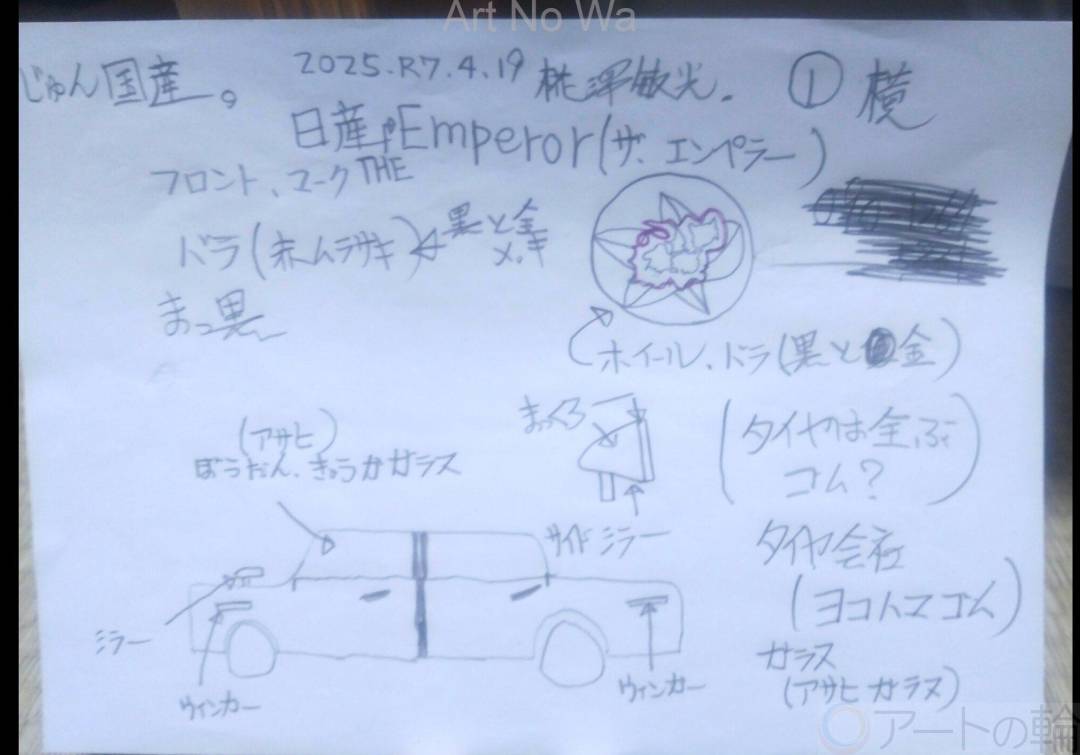 Art No Wa
じゅん国産。
2025.R7.4.19 桃澤敏光.
① 横
日産 Emperor(ザ、エンペラー)
フロント、マーク THE
ドラ(赤ムラサキ)
黒と金
メッキ
まっ黒
ホイール、ドラ(黒と金)
まっくろ
(タイヤは全ぶ
ゴム?)
(アサヒ)
ぼうだん、きょうかガラス
サイドミラー
タイヤ会社
(ヨコハマゴム)
ミラー
ウィンカー
ウィンカー
ガラス
(アサヒガラス)
アートの輪